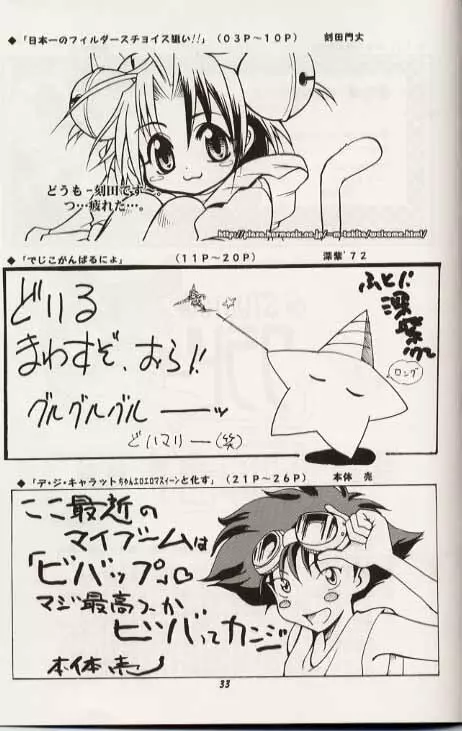 ◆「日本一のフィルダースチョイス狙い!!」(03P～10P) 刻田門丈
どうも－刻田です～。
つ…疲れた…。
◆「でじこがんばるにょ」 (11P～20P) 深紫'72
どりる
まわすぞ、おら!!
グルグルグルーーッ
どハマリー(笑)
ふとパ
深紫'72
ロング
◆「デ・ジ・キャラットちゃんエロエロマスィーンと化す」(21P～26P) 本体 売
ここ最近の
マイブームは
「ビバップ」♡
マジ最高つーか
ビツバってカンジ
本体 売
33